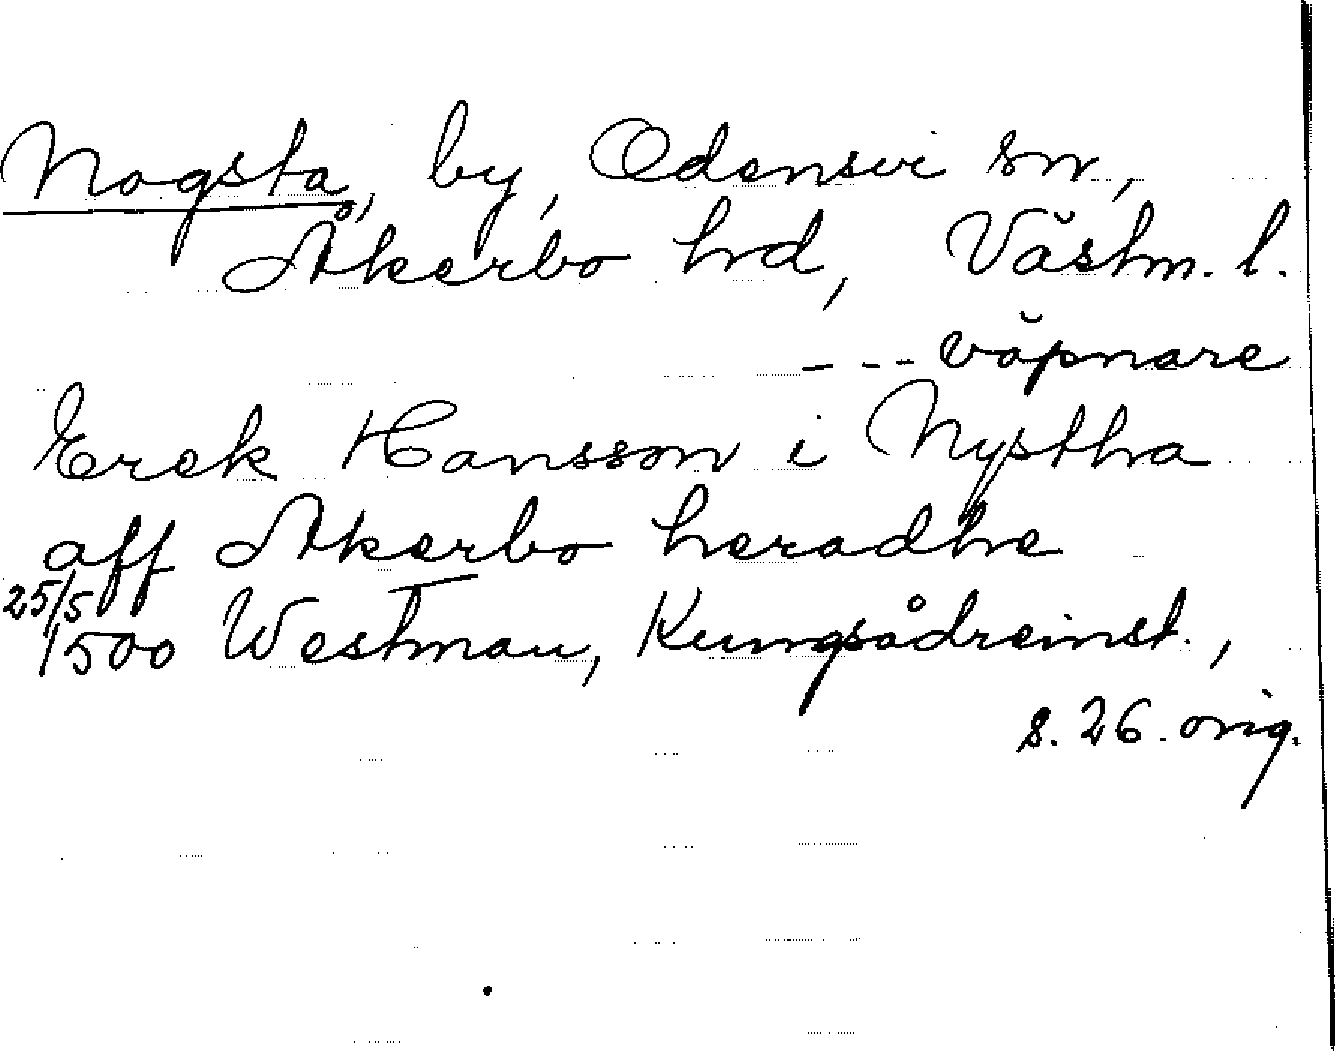 Nogsta, by, Odensvi sn,
Åkerbo hrd, Västm. l.
--- väpnare
Erek Hansson i Nystha
aff Akerbo heradhe
25/5
1500 Westman, Kungsådreinst.,
s. 26. orig.